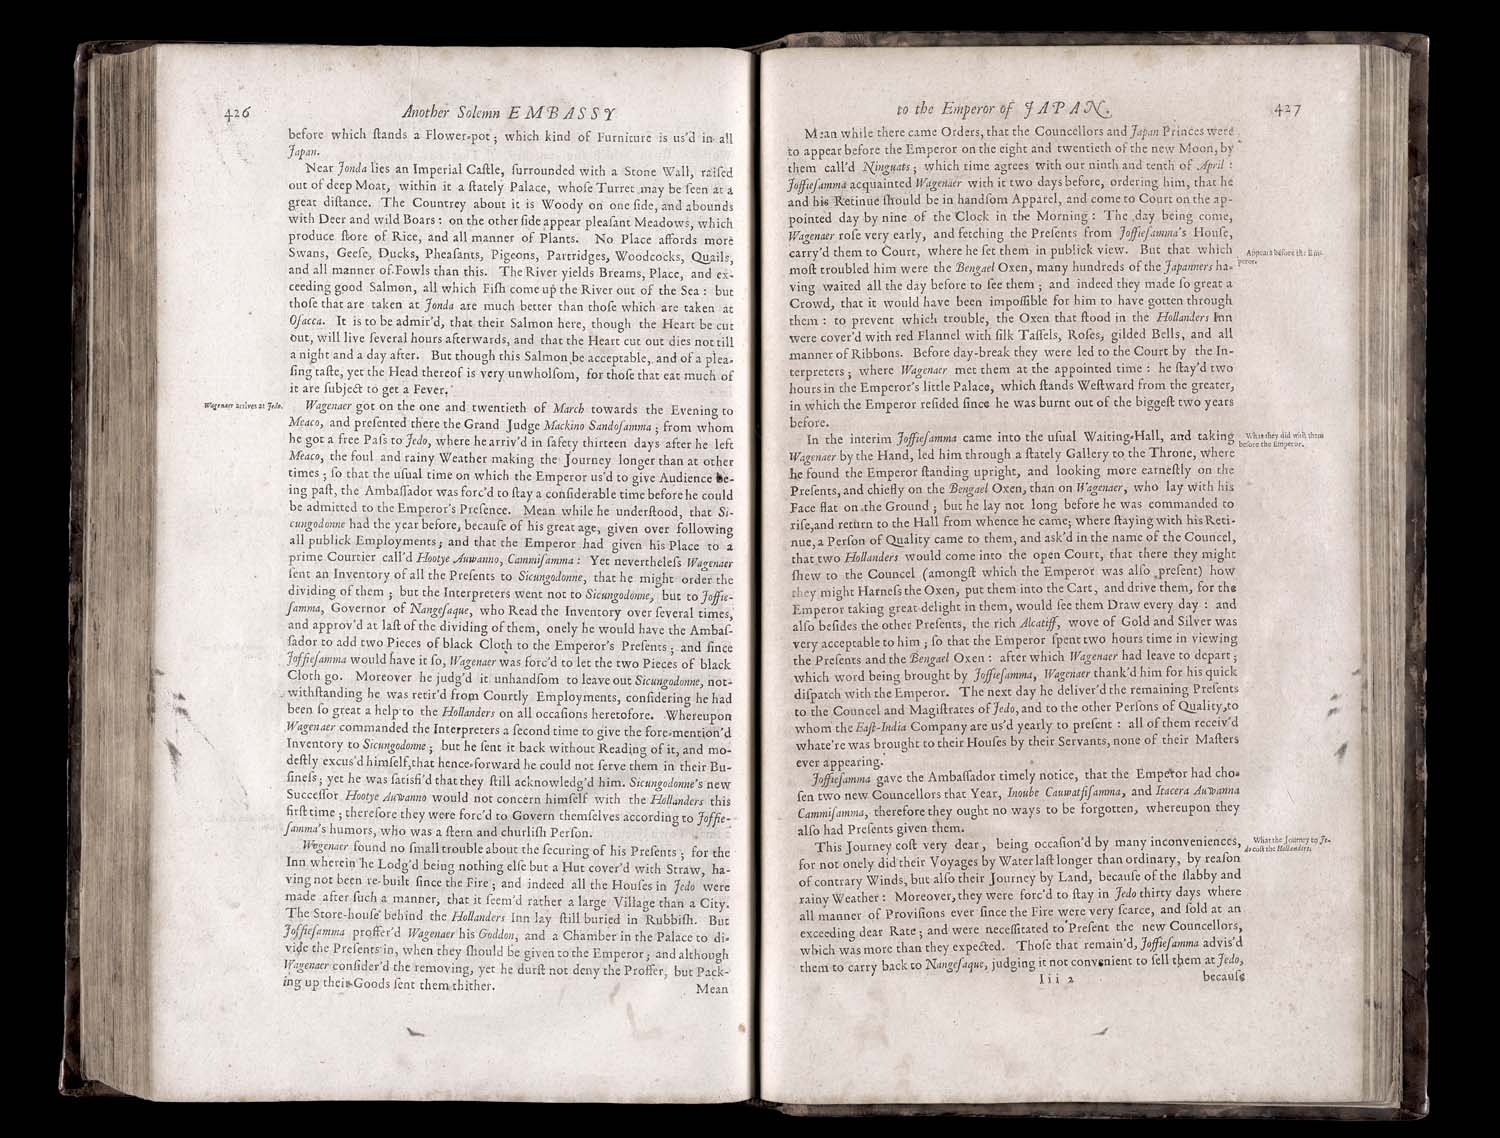 426
Another Solemn EMBASSY
before which ſtands a Flower-pot; which kind of Furniture is us'd in all
Japan.
Near Jonda lies an Imperial Caſtle, ſurrounded with a Stone Wall, raiſed
out of deep Moat, within it a ſtately Palace, whoſe Turret may be ſeen at a
great diſtance. The Countrey about it is Woody on one ſide, and abounds
with Deer and wild Boars: on the other ſide appear pleaſant Meadows, which
produce ſtore of Rice, and all manner of Plants. No Place affords more
Swans, Geeſe, Ducks, Pheaſants, Pigeons, Partridges, Woodcocks, Quails,
and all manner of Fowls than this. The River yields Breams, Place, and ex-
ceeding good Salmon, all which Fiſh come up the River out of the Sea: but
thoſe that are taken at Jonda are much better than thoſe which are taken at
Oſacca. It is to be admir'd, that their Salmon here, though the Heart be cut
out, will live ſeveral hours afterwards, and that the Heart cut out dies not till
a night and a day after. But though this Salmon be acceptable, and of a plea-
ſing taſte, yet the Head thereof is very unwholſom, for thoſe that eat much of
it are ſubject to get a Fever.
Wagenaer arrives at Jedo.
Wagenaer got on the one and twentieth of March towards the Evening to
Meaco, and preſented there the Grand Judge Mackino Sandoſamma; from whom
he got a free Paſs to Jedo, where he arriv'd in ſafety thirteen days after he left
Meaco, the foul and rainy Weather making the Journey longer than at other
times; ſo that the uſual time on which the Emperor us'd to give Audience be-
ing paſt, the Ambaſſador was forc'd to ſtay a conſiderable time before he could
be admitted to the Emperor's Preſence. Mean while he underſtood, that Si-
cungodonne had the year before, becauſe of his great age, given over following
all publick Employments; and that the Emperor had given his Place to a
prime Courtier call'd Hootye Auwanno, Cammiſamma: Yet nevertheleſs Wagenaer
ſent an Inventory of all the Preſents to Sicungodonne, that he might order the
dividing of them; but the Interpreters went not to Sicungodonne, but to Joffie-
ſamma, Governor of Nangeſaque, who Read the Inventory over ſeveral times,
and approv'd at laſt of the dividing of them, onely he would have the Ambaſ-
ſador to add two Pieces of black Cloth to the Emperor's Preſents; and ſince
Joffieſamma would have it ſo, Wagenaer was forc'd to let the two Pieces of black
Cloth go. Moreover he judg'd it unhandſom to leave out Sicungodonne, not-
withſtanding he was retir'd from Courtly Employments, conſidering he had
been ſo great a help to the Hollanders on all occaſions heretofore. Whereupon
Wagenaer commanded the Interpreters a ſecond time to give the fore-mention'd
Inventory to Sicungodonne; but he ſent it back without Reading of it, and mo-
deſtly excus'd himſelf, that hence-forward he could not ſerve them in their Bu-
ſineſs; yet he was ſatisfi'd that they ſtill acknowledg'd him. Sicungodonne's new
Succeſſor Hootye Auwanno would not concern himſelf with the Hollanders this
firſt time; therefore they were forc'd to Govern themſelves according to Joffie-
ſamma's humors, who was a ſtern and churliſh Perſon.
Wagenaer found no ſmall trouble about the ſecuring of his Preſents; for the
Inn wherein he Lodg'd being nothing elſe but a Hut cover'd with Straw, ha-
ving not been re-built ſince the Fire; and indeed all the Houſes in Jedo were
made after ſuch a manner, that it ſeem'd rather a large Village than a City.
The Store-houſe behind the Hollanders Inn lay ſtill buried in Rubbiſh. But
Joffieſamma proffer'd Wagenaer his Goddon, and a Chamber in the Palace to di-
vide the Preſents in, when they ſhould be given to the Emperor; and although
Wagenaer conſider'd the removing, yet he durſt not deny the Proffer, but Pack-
ing up their Goods ſent them thither.
Mean
to the Emperor of JAPAN.
427
Mean while there came Orders, that the Councellors and Japan Princes were
to appear before the Emperor on the eight and twentieth of the new Moon, by
them call'd Ninguats; which time agrees with our ninth and tenth of April:
Joffieſamma acquainted Wagenaer with it two days before, ordering him, that he
and his Retinue ſhould be in handſom Apparel, and come to Court on the ap-
pointed day by nine of the Clock in the Morning: The day being come,
Wagenaer roſe very early, and fetching the Preſents from Joffieſamma's Houſe,
carry'd them to Court, where he ſet them in publick view. But that which
Appears before the Em-
peror.
moſt troubled him were the Bengael Oxen, many hundreds of the Japanners ha-
ving waited all the day before to ſee them; and indeed they made ſo great a
Crowd, that it would have been impoſſible for him to have gotten through
them: to prevent which trouble, the Oxen that ſtood in the Hollanders Inn
were cover'd with red Flannel with ſilk Taſſels, Roſes, gilded Bells, and all
manner of Ribbons. Before day-break they were led to the Court by the In-
terpreters; where Wagenaer met them at the appointed time: he ſtay'd two
hours in the Emperor's little Palace, which ſtands Weſtward from the greater,
in which the Emperor reſided ſince he was burnt out of the biggeſt two years
before.
In the interim Joffieſamma came into the uſual Waiting-Hall, and taking
What they did with them
before the Emperor.
Wagenaer by the Hand, led him through a ſtately Gallery to the Throne, where
he found the Emperor ſtanding upright, and looking more earneſtly on the
Preſents, and chiefly on the Bengael Oxen, than on Wagenaer, who lay with his
Face flat on the Ground; but he lay not long before he was commanded to
riſe, and return to the Hall from whence he came; where ſtaying with his Reti-
nue, a Perſon of Quality came to them, and ask'd in the name of the Councel,
that two Hollanders would come into the open Court, that there they might
ſhew to the Councel (amongſt which the Emperor was alſo preſent) how
they might Harneſs the Oxen, put them into the Cart, and drive them, for the
Emperor taking great delight in them, would ſee them Draw every day: and
alſo beſides the other Preſents, the rich Alcatiff, wove of Gold and Silver was
very acceptable to him; ſo that the Emperor ſpent two hours time in viewing
the Preſents and the Bengael Oxen: after which Wagenaer had leave to depart;
which word being brought by Joffieſamma, Wagenaer thank'd him for his quick
diſpatch with the Emperor. The next day he deliver'd the remaining Preſents
to the Councel and Magiſtrates of Jedo, and to the other Perſons of Quality, to
whom the Eaſt-India Company are us'd yearly to preſent: all of them receiv'd
whate're was brought to their Houſes by their Servants, none of their Maſters
ever appearing.
Joffieſamma gave the Ambaſſador timely notice, that the Emperor had cho-
ſen two new Councellors that Year, Inoube Cauwatſiſamma, and Itacera Auwanna
Cammiſamma, therefore they ought no ways to be forgotten, whereupon they
alſo had Preſents given them.
This Journey coſt very dear, being occaſion'd by many inconveniences,
What the Journey to Je-
do coſt the Hollanders.
for not onely did their Voyages by Water laſt longer than ordinary, by reaſon
of contrary Winds, but alſo their Journey by Land, becauſe of the ſlabby and
rainy Weather: Moreover, they were forc'd to ſtay in Jedo thirty days where
all manner of Proviſions ever ſince the Fire were very ſcarce, and ſold at an
exceeding dear Rate; and were neceſſitated to Preſent the new Councellors,
which was more than they expected. Thoſe that remain'd, Joffieſamma advis'd
them to carry back to Nangeſaque, judging it not convenient to ſell them at Jedo,
Iii 2
becauſe